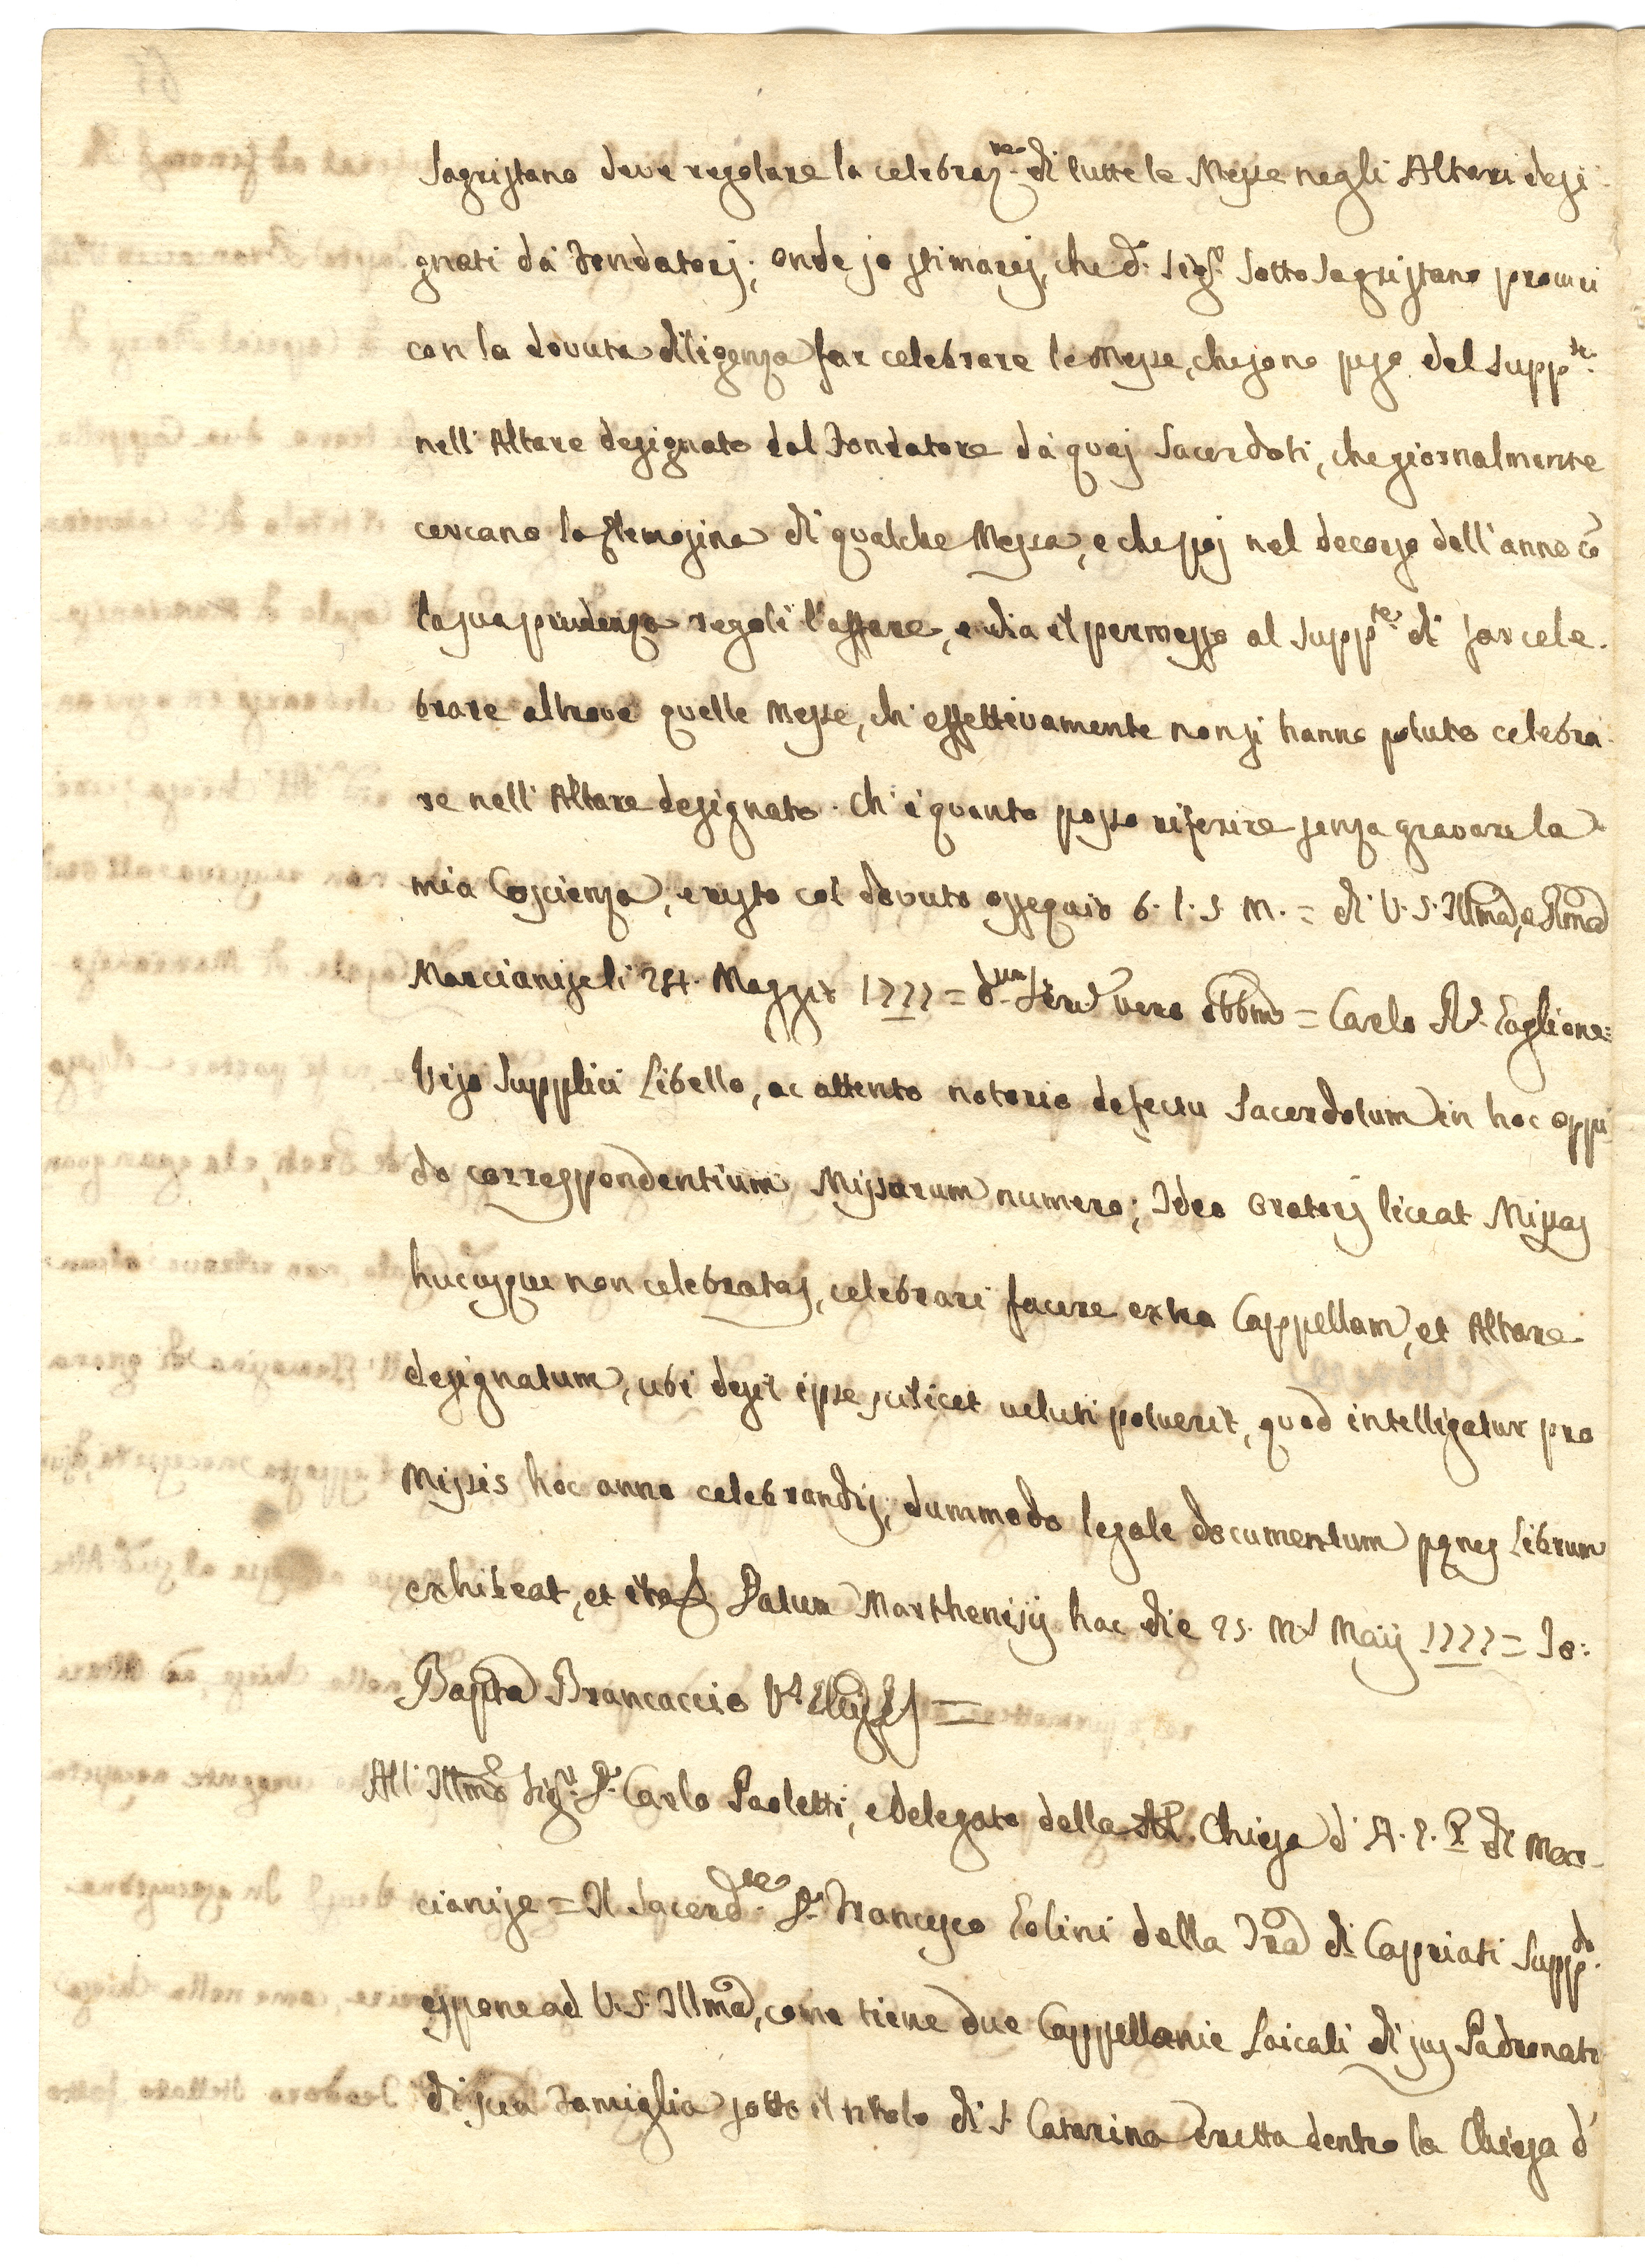 Sagristano deve regolare la celebraz.ne di tutte le Messe negli Altari desi-
gnati dà Fondatori; onde io stimarei, che d.o Sig.r Sotto Sagristano procuri
con la dovuta diligenza far celebrare le Messe, che sono peso del Supp.te
nell'Altare designato dal Fondatore dà quei Sacerdoti, che giornalmente
cercano la elemosina di qualche Messa, e che poi nel decorso dell'anno cõ
la sua prudenza regoli l'affare, e dia il permesso al Supp.te di far cele-
brare altrove quelle Messe, ch'effettivamente non si hanno potuto celebra-
re nell'Altare designato. Ch'è quanto posso riferire senza gravare la
mia Coscienza, e resto col dovuto ossequio b. l. s. m. = di V. S. Illma, e Rma
Marcianise li 24. Maggio 1777 = Servr vero obbmo = Carlo Taglione:
Viso supplici Libello, ac attento notorio defectu Sacerdotum in hoc oppi
do correspondentium Missarum numero; Ideo Oratori liceat Missas
hucusque non celebratas, celebrari facere extra Cappellam, et Altare
designatum, ubi scilicet veluti potuerit, quod intelligatur pro
Missis hoc anno celebrandis, dummodo legale documentum penes Librum
exhibeat, et ita Datum Marthenisij hac die 25. Ms Maij 1777 = Io:
Bapta Brancaccio
All'Illmo Sig.r D. Carlo Paoletti, e Delegato della Chiesa d' A. G. P. di Mar-
cianise = Il Sacerd.te D. Francesco Tolini della Tra di Capriati Supp.do
espone ad V. S. Illma, come tiene due Cappellanie Laicali di jus Padronato
di sua Famiglia sotto il titolo di S. Catarina eretta dentro la Chiesa d'